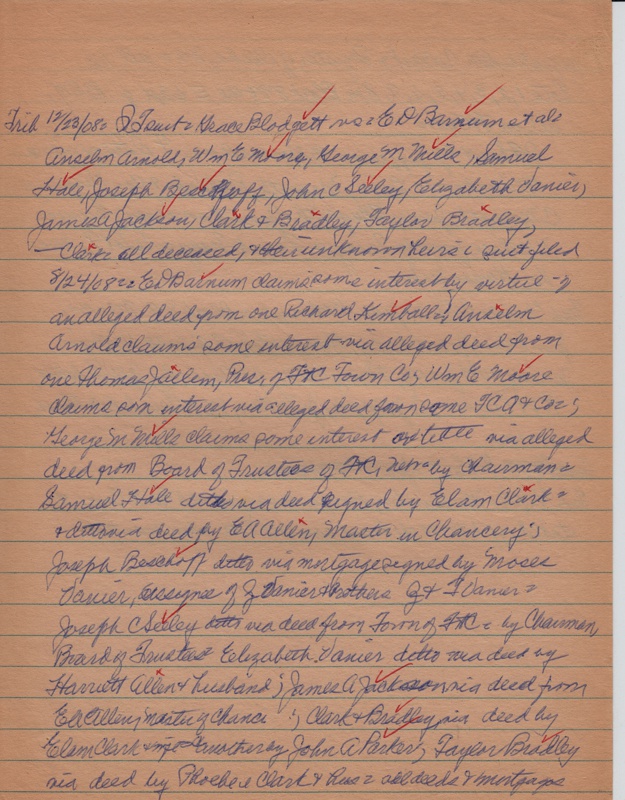 Trib 12/23/08 = QT suit = Grace Blodgett vs = E D Barnum et al =
Anselm Arnold, Wm E Moore, George M Mills, Samuel
Hale, Joseph Beschoff, John C Seeley, Elizabeth Vanier,
James A Jackson, Clark & Bradley, Taylor Bradley,
— Clark = all deceased, & their unknown heirs = suit filed
8/24/08 = = E D Barnum claims some interest by virtue of
an alleged deed from one Richard Kimball; Anselm
Arnold claims some interest via alleged deed from
one Thomas, Pres, of FTC Town Co; Wm E Moore
claims som interest via alleged deed from some TCA & Co = ;
George M Mills claims some interest or title via alleged
deed from Board of Trustees of FTC, by Chairman =
Samuel Hale ditto via deed signed by Elam Clark =
& ditto via deed by E A Allen, Master in Chancery ;
Joseph Beschoff ditto via mortgage signed by Moses
Vanier, assignee of Z Vanier & Brothers G & T Vanier =
Joseph C Seeley ditto via deed from Town of FTC = by Chairman,
Board of Trustees Elizabeth Vanier ditto via deed by
Harriett Allen & husband ; James A Jackson via deed from
E A Allen, master of Chance ; Clark & Bradley via deed by
Elam Clark & another by John A Parker ; Taylor Bradley
via deed by Phoebe Clark & hus = all deeds & mortgage